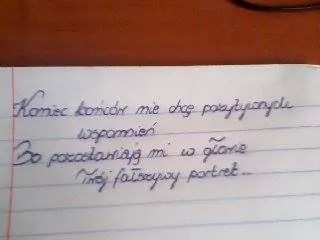 Koniec końców nie chcę pozytywnych
wspomnień
Bo pozostawiają mi w głowie
Twój fałszywy portret..